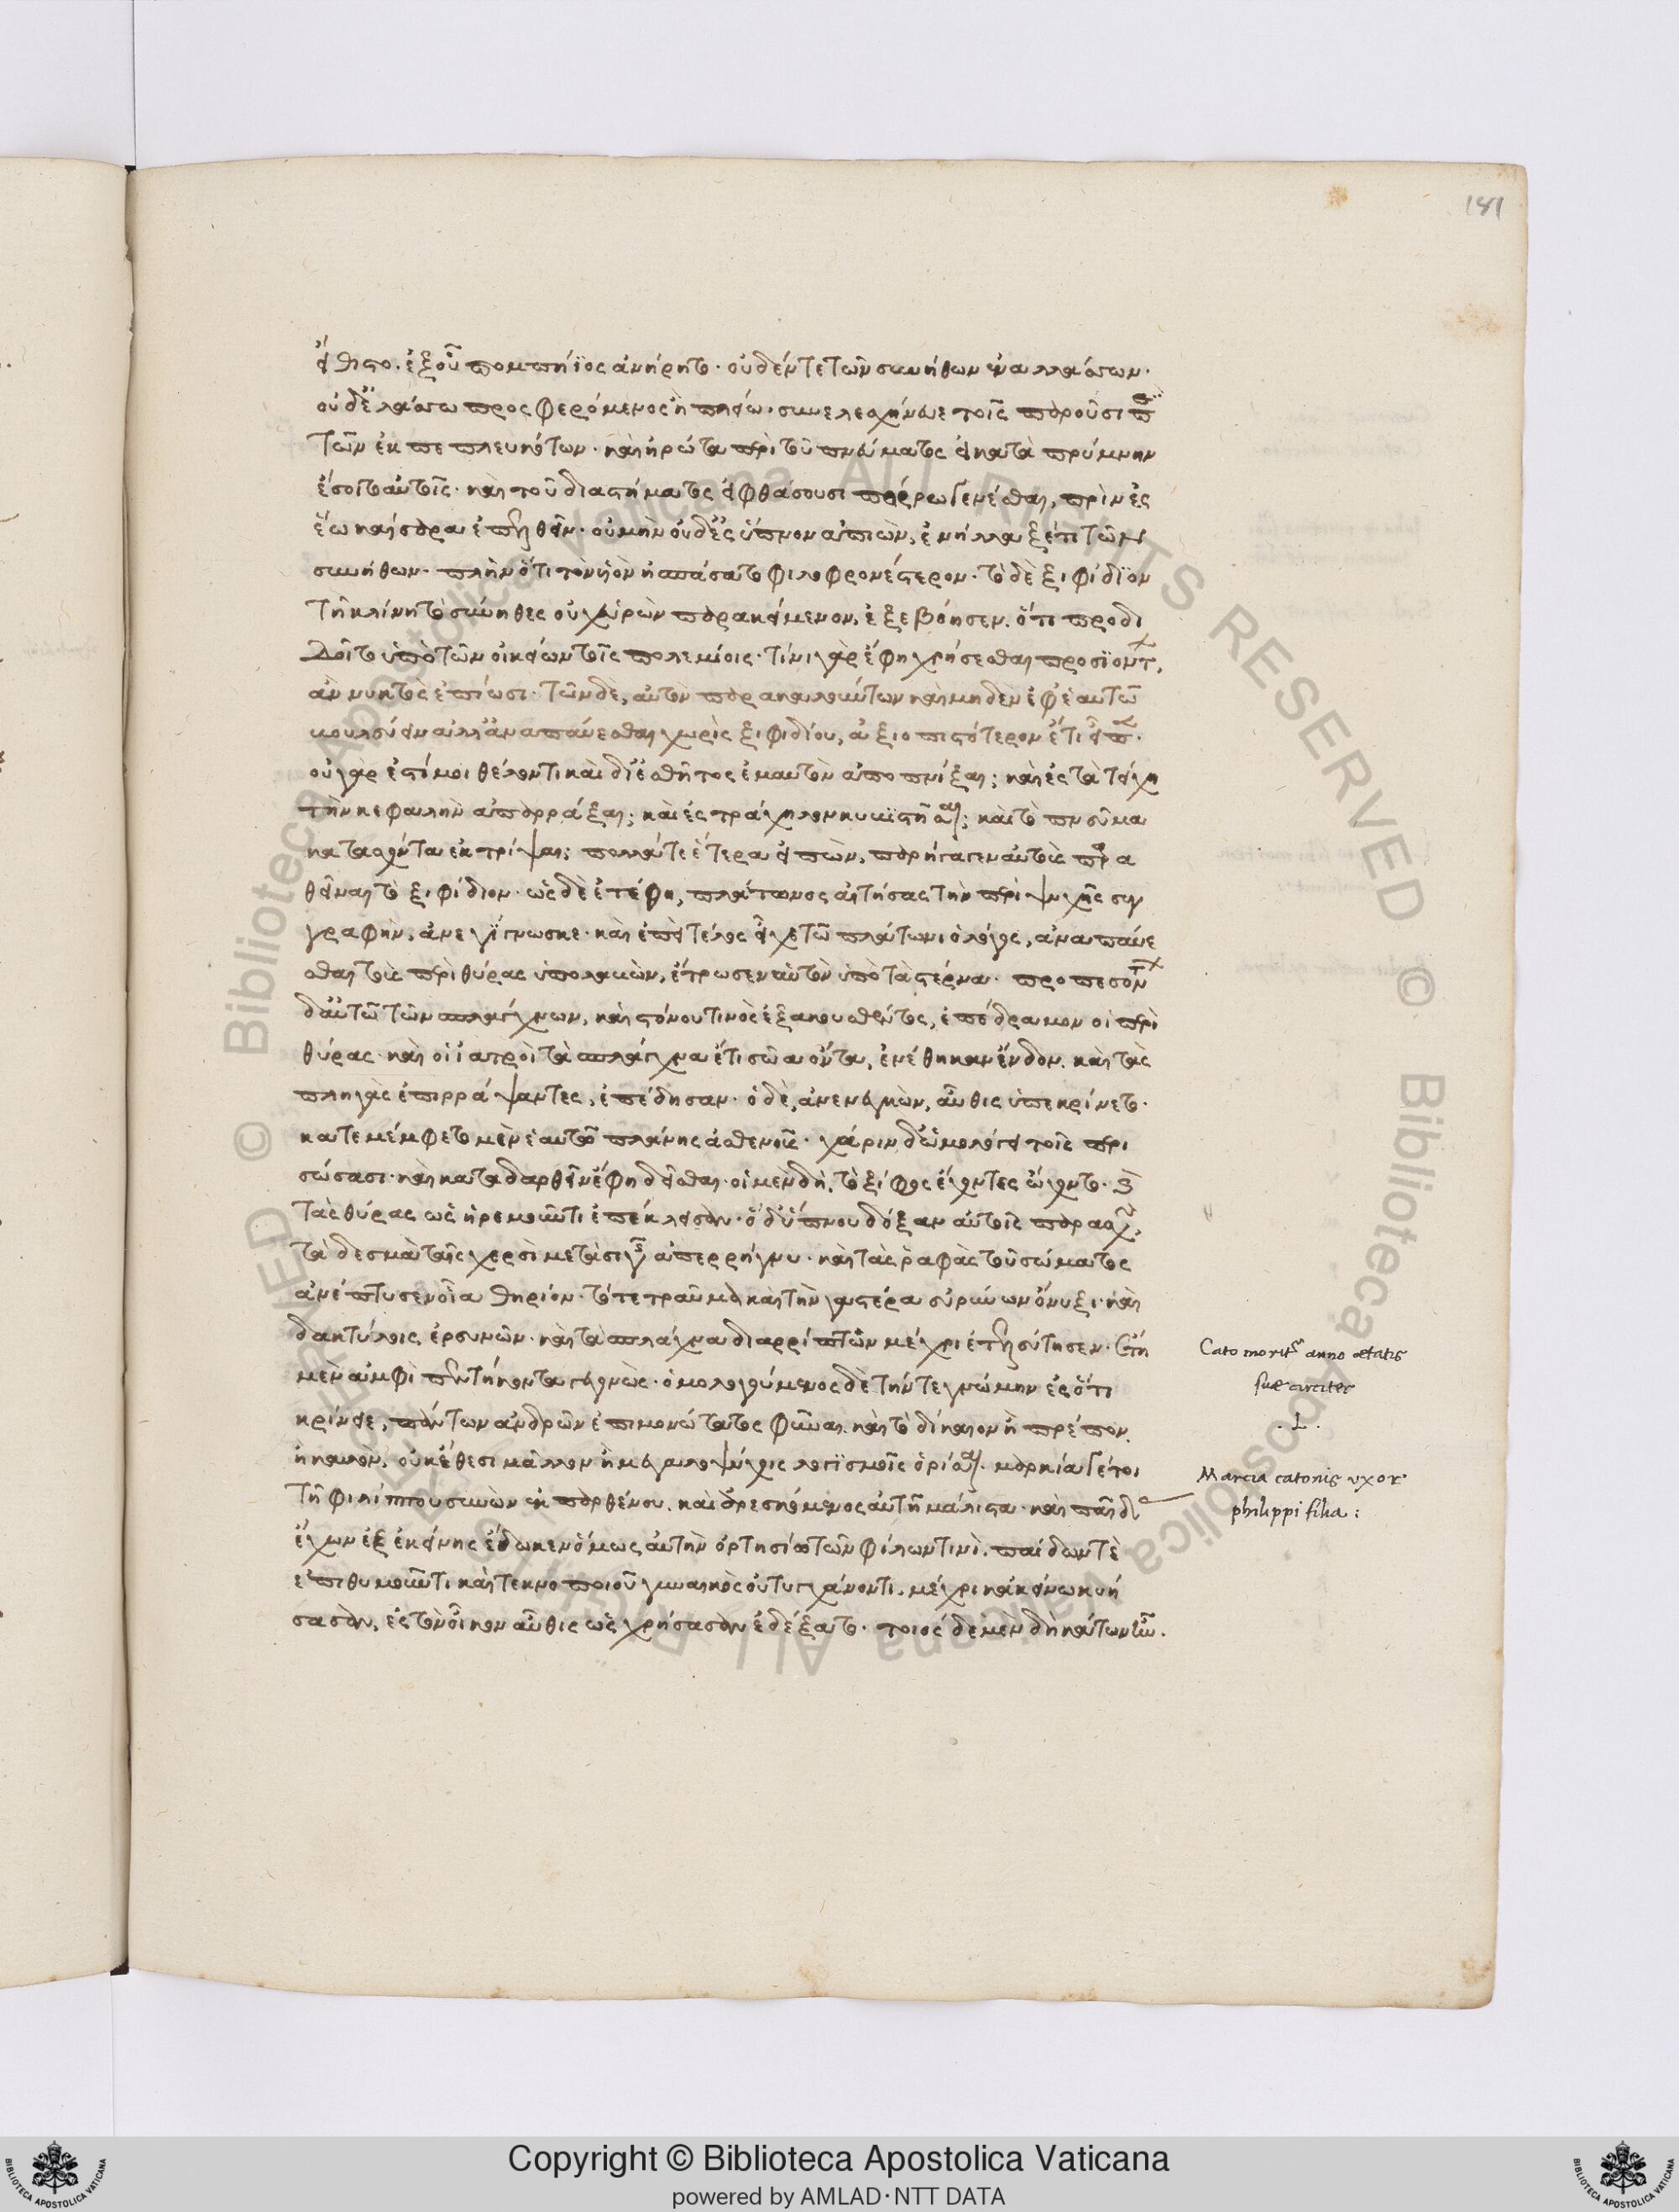 181
εἴθιστο. ἐξ οὗ πομπήϊος ἀνήρητο· οὐδέν τε τῶν συνήθων ἐναλλάσσων·
οὐδὲ ἐλάσσω προσφερόμενος ἢ πλείω· συνελεγχήνατε τοῖς παροῦσι περὶ
τῶν ἐκπεπλευκότων· καὶ ἠρώτα περὶ τοῦ πνεύματος εἰ κατὰ πρύμνην
ἔσοιτο αὐτοῖς· καὶ τοῦ διαστήματος εἰ φθάσουσι πόρρω γενέσθαι, πρὶν ἐς
ἕω καίσαρα ἐπελθεῖν· οὐ μὴν οὐδὲ ἐς ὕπνον ἀπιὼν, ἐνήλλαξέ τι τῶν
συνήθων· πλὴν ὅτι τὸν υἱὸν ἠσπάσατο φιλοφρονέστερον· τὸ δὲ ξιφίδιον
τῇ κλίνῃ τὸ σύνηθες οὐχ εὑρὼν παρακείμενον, ἐξεβόησεν. ὅτι προδι
δοῖτο ὑπὸ τῶν οἰκείων τοῖς πολεμίοις· τίνι γὰρ ἔφη χρήσεσθαι προσϊόντων,
ἂν νυκτὸς ἐπίωσι· τῶν δὲ, αὐτὸν παρακαλούντων καὶ μηδὲν ἐφ' ἑαυτῷ
βουλεύειν ἀλλ' ἀναπαύεσθαι χωρὶς ξιφιδίου, ἀξιοπιστότερον ἔτι εἶπεν·
οὐ γὰρ ἔστί μοι θέλοντι καὶ δι' ἐσθῆτος ἐμαυτὸν ἀποπνίξαι; καὶ ἐς τὰ τείχη
τὴν κεφαλὴν ἀπαρράξαι; καὶ ἐς τράχηλον κυβιστῆσαι; καὶ τὸ πνεῦμα
κατασχόντα ἐκτρίψαι; πολλά τε ἕτερα εἰπὼν, παρήγαγεν αὐτοὺς παρα
θεῖναι τὸ ξιφίδιον· ὡς δὲ ἐτέθη, πλάτωνος αἰτήσας τὴν περὶ ψυχῆς συγ
γραφὴν, ἀνεγίγνωσκε· καὶ ἐπεὶ τέλος εἶχε τῷ πλάτωνι ὁ λόγος, ἀναπαύε
σθαι τοὺς περὶ θύρας ὑπολαβὼν, ἔτρωσεν αὑτὸν ὑπὸ τὰ στέρνα· προπεσόντων
δ' αὐτῷ τῶν σπλάγχνων, καὶ στόνου τινὸς ἐξακουσθέντος, ἐπέδραμον οἱ περὶ
θύρας· καὶ οἱ ἰατροὶ τὰ σπλάγχνα ἔτι σῶα ὄντα, ἐνέθηκαν ἔνδον. καὶ τὰς
πληγὰς ἐπιρράψαντες, ἐπέδησαν· ὁ δὲ, ἀνενεγκὼν, αὖθις ὑπεκρίνετο·
κατεμέμφετο μὲν ἑαυτῷ πλάνης ἀσθενοῦς· χάριν δ' ὡμολόγει τοῖς περι
σώσασι· καὶ καταδαρθεῖν ἔφη δεῖσθαι· οἱ μὲν δὴ, τὸ ξίφος ἔχοντες ᾤχοντο· καὶ
τὰς θύρας ὡς ἠρεμοῦντι ἐπέκλεισαν· ὁ δ' ὕπνου δόξαν αὐτοῖς παρασχών,
τὰ δεσμὰ ταῖς χερσὶ μετὰ σιγῆς ἀπερρήγνυ· καὶ τὰς ῥαφὰς τοῦ σώματος
ἀνέπτυσεν οἷα θηρίον· τό τε τραῦμα καὶ τὴν γαστέρα εὐρύνων ὄνυξι· καὶ
δακτύλοις ἐρευνῶν· καὶ τὰ σπλάγχνα διαρρίπτων μέχρι ἐτελεύτησεν· ἔτη
μὲν ἀμφὶ πεντήκοντα γεγονώς· ὁμολογούμενος δὲ τήν τε γνώμην ἐς ὅτι
κρίνειε, πάντων ἀνδρῶν ἐπιμονώτατος φῦναι. καὶ τὸ δίκαιον ἢ πρέπον.
ἢ καλὸν, οὐκ ἔθεσι μᾶλλον ἢ μεγαλοψύχοις λογϊσμοῖς ὁρίσαι. μαρκίᾳ γέ τοι
τῇ φιλίππου συνὼν ἐκ παρθένου. καὶ ἀρεσκόμενος αὐτῇ μάλιστα· καὶ παῖδας
ἔχων ἐξ ἐκείνης ἔδωκεν ὅμως αὐτὴν ὁρτησίῳ τῶν φίλων τινὶ. παίδων τὲ
ἐπιθυμοῦντι καὶ τεκνοποιοῦ γυναικὸς οὐ τυγχάνοντι. μέχρι κἀκείνῳ κυή
σασαν, ἐς τὸν οἶκον αὖθις ὡς χρήσασαν ἐδέξατο. τοιόσδε μὲν δὴ κάτων ἦν.
Cato moritur anno ætatis
suæ circiter
.L.
Marcia catonis vxor
philippi filia:
© Biblioteca Apostolica Vaticana ALL RIGHTS RESERVED
Copyright © Biblioteca Apostolica Vaticana
powered by AMLAD·NTT DATA